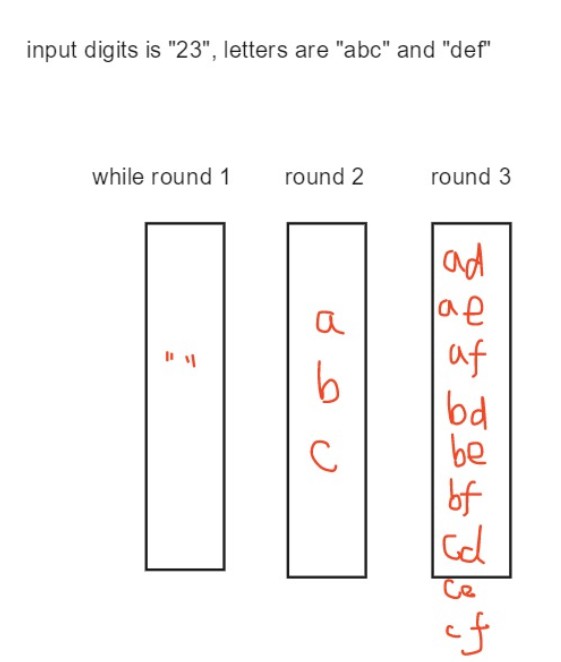 input digits is "23", letters are "abc" and "def"
while round 1
round 2
round 3
" "
a
b
c
ad
ae
af
bd
be
bf
cd
ce
cf